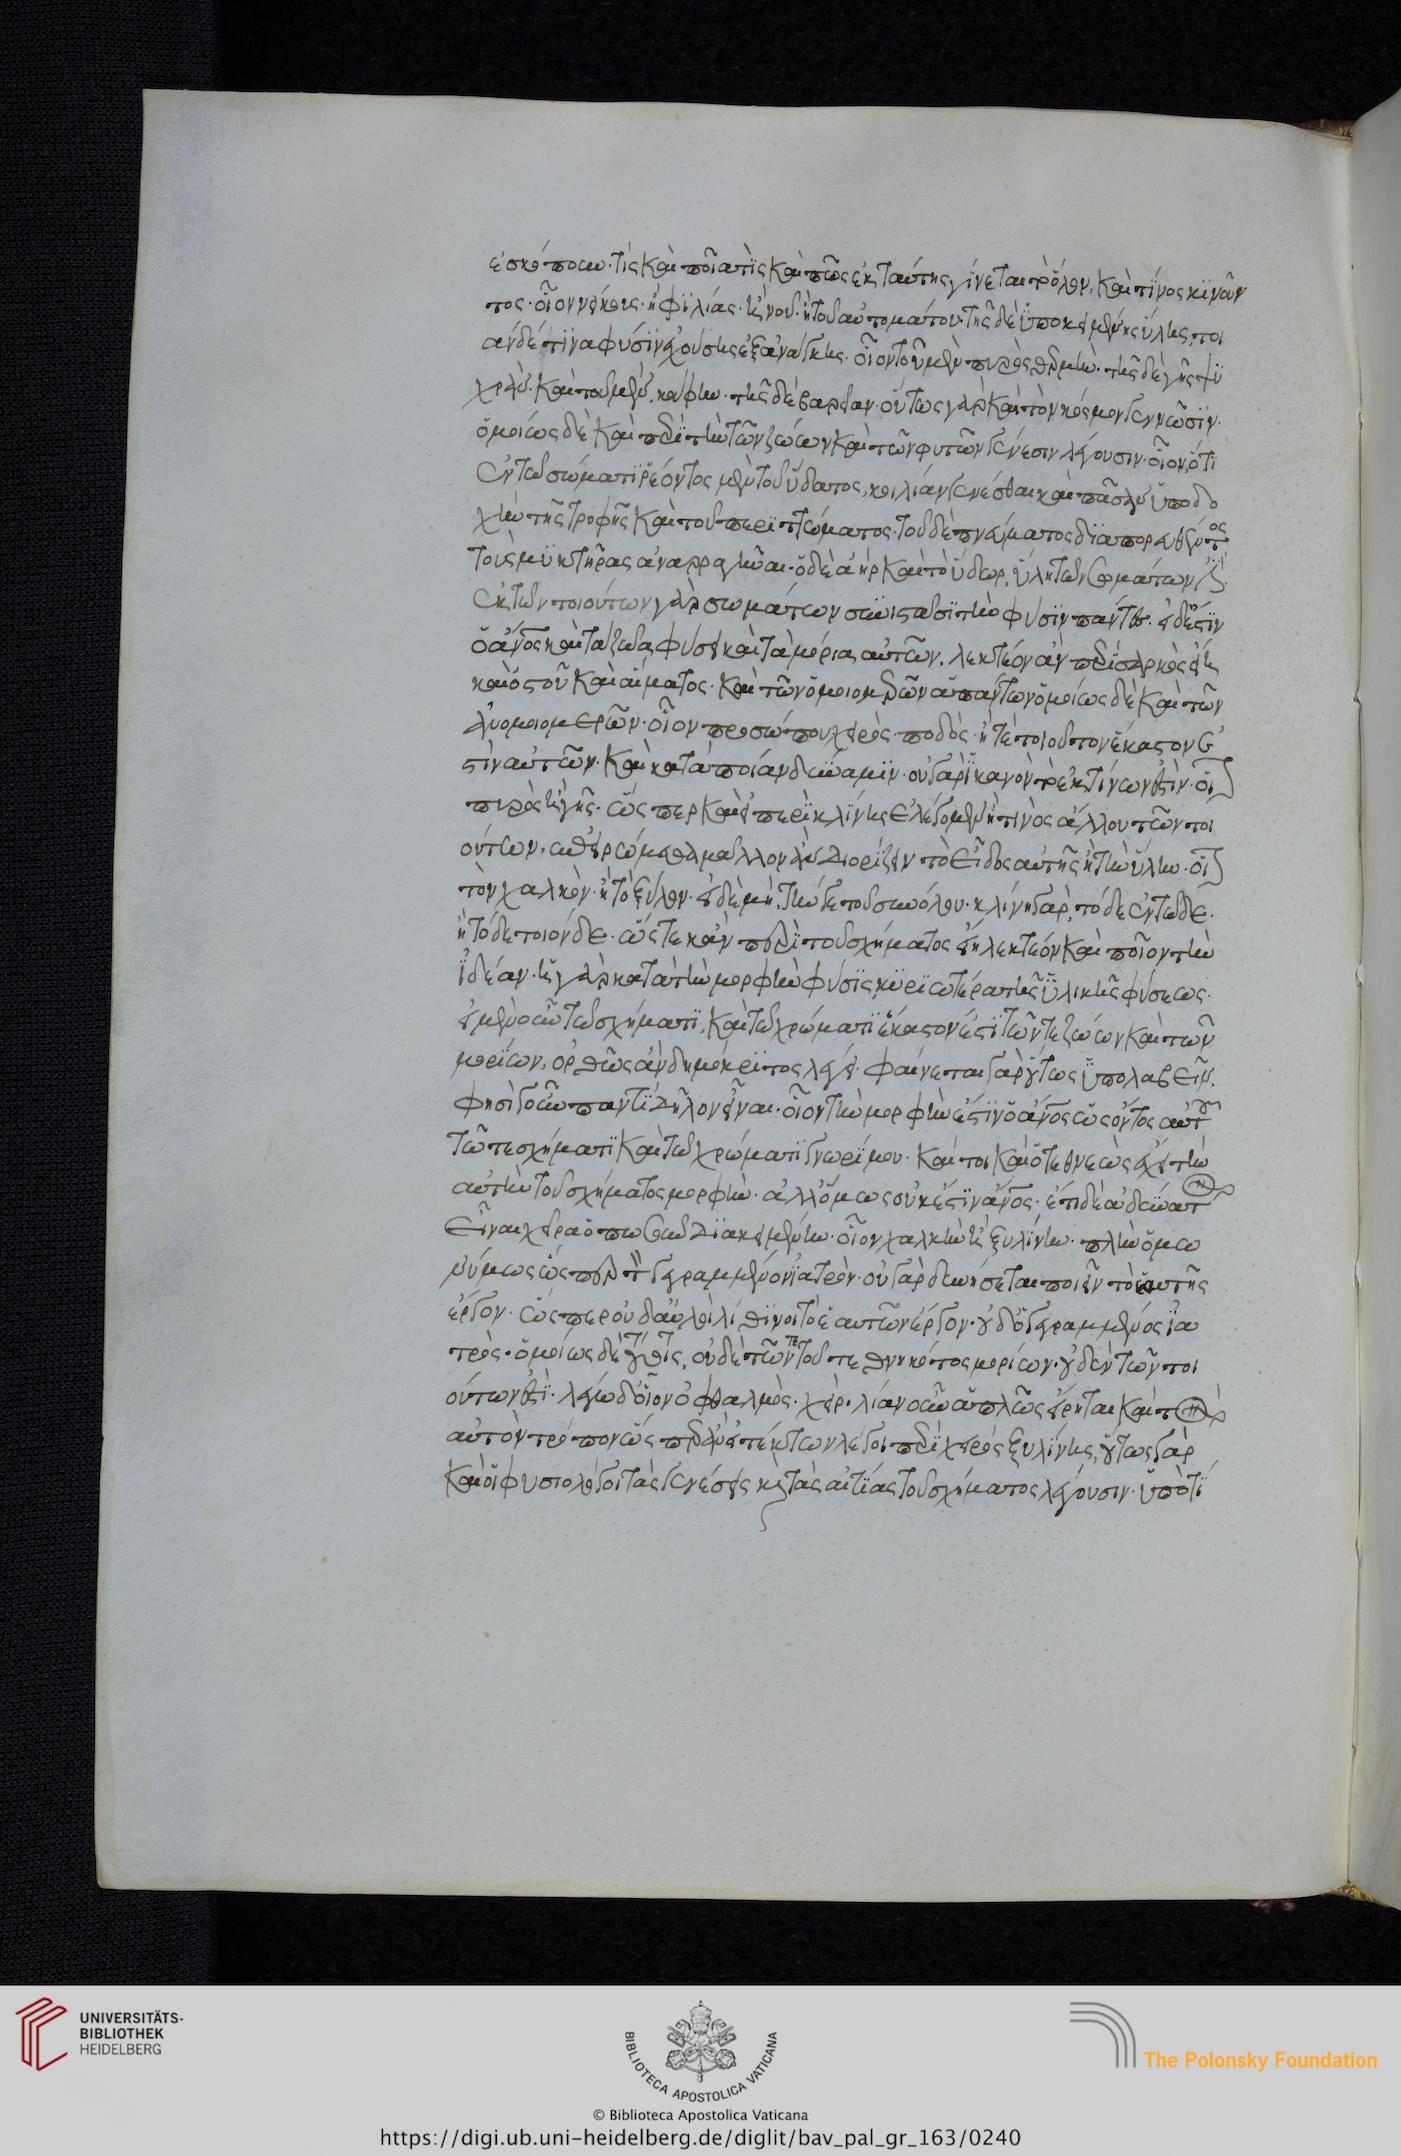 ἐσκόπουν· τίς καὶ ποῖα τὶς καὶ πῶς ἐκ ταύτης γίνεται τὸ ὅλον, καὶ τίνος κινοῦν
τος· οἷον νείκους· ἢ φιλίας· ἢ νοῦ· ἢ τοῦ αὐτομάτου· τῆς δὲ ὑποκειμένης ὕλης τοι
άνδέ τινα φύσιν ἐχούσης ἐξ ἀνάγκης· οἷον τοῦ μὲν πυρὸς θερμὴν· τῆς δὲ γῆς ψυ
χρὰν· καὶ τοῦ μὲν, κούφην· τῆς δὲ βαρεῖαν· οὕτως γὰρ καὶ τὸν κόσμον γεννῶσιν·
ὁμοίως δὲ καὶ περὶ τὴν τῶν ζώων καὶ τῶν φυτῶν γένεσιν λέγουσιν· οἷον, ὅτι
ἐν τῶ σώματι ῥέοντος μὲν τοῦ ὕδατος, κοιλίαν γενέσθαι καὶ πᾶσαν ὑποδο
χὴν τῆς τροφῆς καὶ τοῦ περιττώματος· τοῦ δὲ πνεύματος διαπορευθέντος
τοὺς μυκτῆρας ἀναρραγῆναι· ὁ δὲ ἀὴρ καὶ τὸ ὕδωρ, ὕλη τῶν σωμάτων ἐστί·
ἐκ τῶν τοιούτων γὰρ σωμάτων συνιστᾶσι τὴν φύσιν πάντες· εἰ δέ ἐστιν
ὁ ἄνος καὶ τὰ ζῶα φύσει καὶ τὰ μόρια αὐτῶν, λεκτέον ἂν περὶ σαρκὸς εἴη
καὶ ὀστοῦ καὶ αἵματος· καὶ τῶν ὁμοιομερῶν ἁπάντων ὁμοίως δὲ καὶ τῶν
ἀνομοιομερῶν· οἷον προσώπου χειρὸς· ποδὸς· ἤ τε τοιοῦτον ἕκαστον ἐ
στὶν αὐτῶν· καὶ κατὰ ποίαν δύναμιν· οὐ γὰρ ἱκανὸν τὸ ἐκ τίνων ἐστὶν· οἷον
πυρὸς ἢ γῆς· ὥσπερ καὶ εἰ περὶ κλίνης ἐλέγομεν ἤ τινὸς ἄλλου τῶν τοι
ούτων· ἐπειρώμεθα μᾶλλον ἂν διορίζειν τὸ εἶδος αὐτῆς ἢ τὴν ὕλην· οἷον
τὸν χαλκὸν· ἢ τὸ ξύλον· εἰ δὲ μὴ, τήν γε τοῦ συνόλου· κλίνη γὰρ, τόδε ἐν τῶδε·
ἢ τόδε τοιόνδε· ὥστε κἂν περὶ τοῦ σχήματος εἴη λεκτέον καὶ ποῖον τὴν
ἰδέαν· ἡ γὰρ κατὰ τὴν μορφὴν φύσις, κυριωτέρα τῆς ὑλικῆς φύσεως·
εἰ μὲν οὖν τῶ σχήματι, καὶ τῶ χρώματι ἕκαστον ἐστὶ τῶν τε ζώων καὶ τῶν
μορίων, ὀρθῶς ἂν δημόκριτος λέγοι· φαίνεται γὰρ οὕτως ὑπολαβεῖν·
φησὶ γοῦν παντὶ δῆλον εἶναι· οἷον τὴν μορφὴν ἐστὶν ὁ ἄνος ὡς ὄντος αὐτοῦ
τῶ τε σχήματι καὶ τῶ χρώματι γνωρίμου· καί τοι καὶ ὁ τεθνεὼς ἔχει τὴν
αὐτὴν τοῦ σχήματος μορφὴν· ἀλλ' ὅμως οὐκ ἐστὶν ἄνος· ἔτι δὲ ἀδύνατον
εἶναι χεῖρα ὁπωσοῦν διακειμένην· οἷον χαλκὴν ἢ ξυλίνην· πλὴν ὁμω
νύμως ὥσπερ τὸν γεγραμμένον ἰατρὸν· οὐ γὰρ δυνήσεται ποιεῖν τὸ ἑαυτῆς
ἔργον· ὥσπερ οὐδ' αὐλοὶ λίθινοι τὸ ἑαυτῶν ἔργον· οὐδ' ὁ γεγραμμένος ἰα
τρὸς· ὁμοίως δὲ τούτοις, οὐδὲ τῶν τοῦ τεθνηκότος μορίων· οὐδὲν τῶν τοι
ούτων ἐστὶ· λέγω δ' οἷον ὀφθαλμὸς· χεὶρ· λίαν οὖν ἁπλῶς εἴρηται καὶ τὸν
αὐτὸν τρόπον ὥσπερ ἂν εἰ τέκτων λέγοι περὶ χειρὸς ξυλίνης, οὕτως γὰρ
καὶ οἱ φυσιολόγοι τὰς γενέσεις καὶ τὰς αἰτίας τοῦ σχήματος λέγουσιν· ὑπὸ τί
UNIVERSITÄTS-
BIBLIOTHEK
HEIDELBERG
BIBLIOTECA APOSTOLICA VATICANA
The Polonsky Foundation
© Biblioteca Apostolica Vaticana
https://digi.ub.uni-heidelberg.de/diglit/bav_pal_gr_163/0240